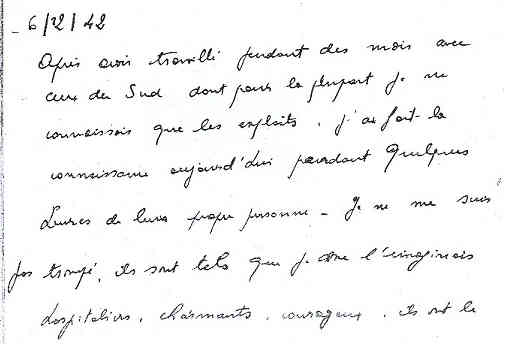 - 6/12/42
Après avoir travaillé pendant des mois avec
ceux du Sud dont pour la plupart je ne
connaissais que les exploits, j'ai fait la
connaissance aujourd'hui pendant quelques
heures de leur propre personne - Je ne me suis
pas trompé, ils sont tels que je me l'imaginais
hospitaliers, charmants, courageux, ils ont le